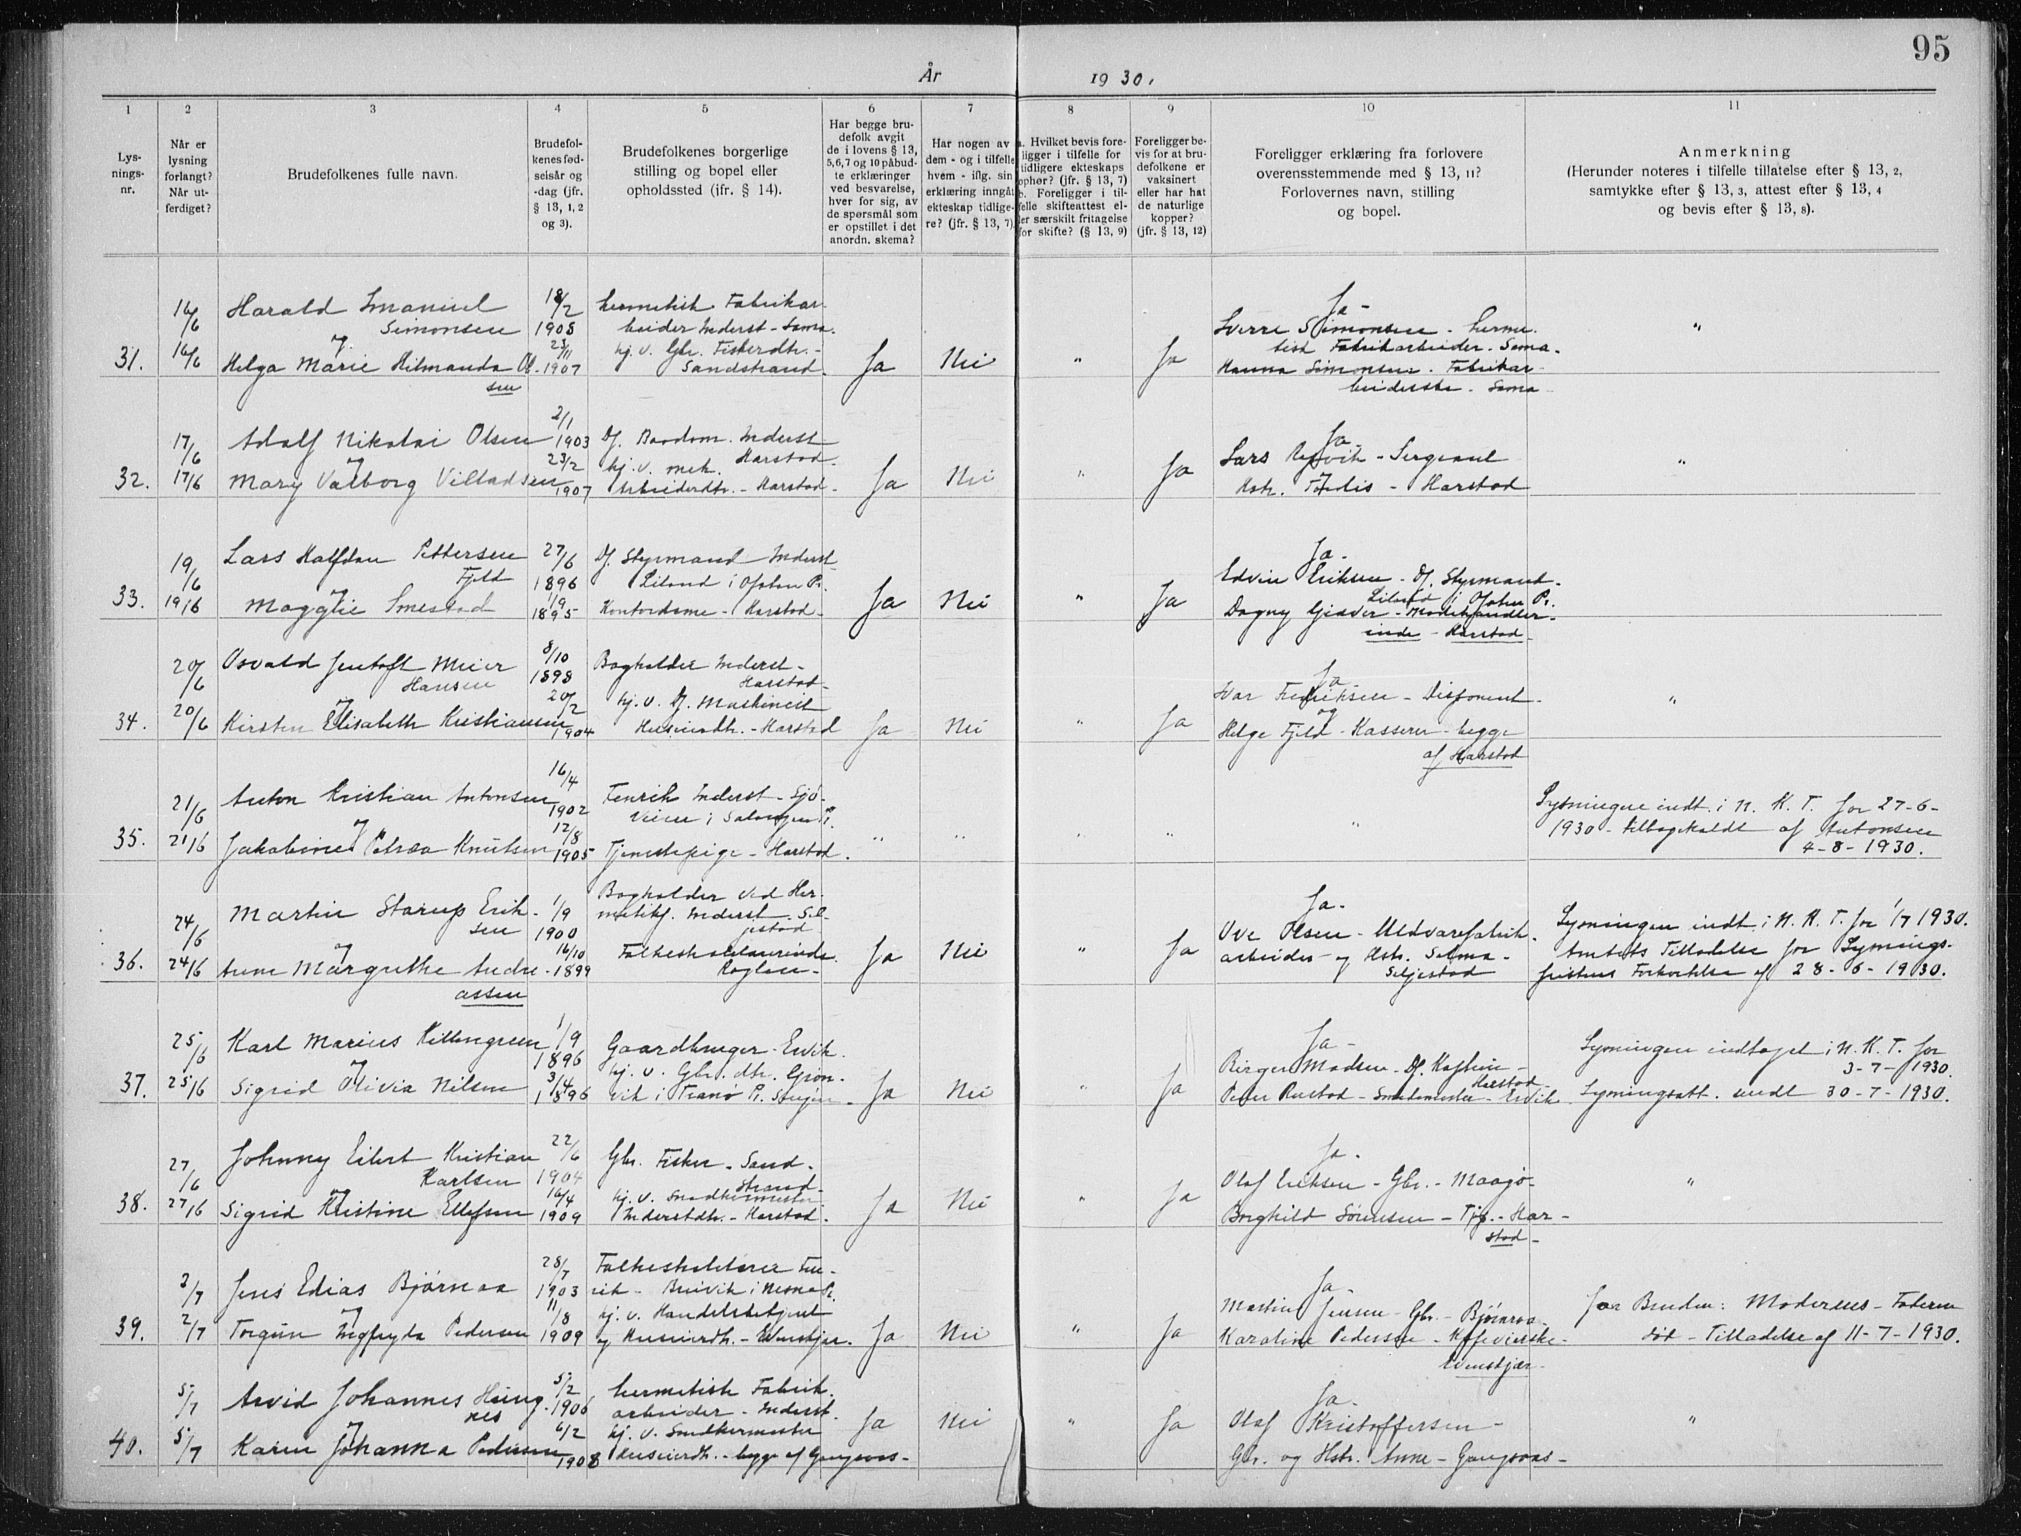 95
År 1930.
1 2 3 4 5 6 7 8 9 10 11
Lys-
nings-
nr.
Når er
lysning
forlangt?
Når ut-
ferdiget?
Brudefolkenes fulle navn.
Brudefol-
kenes fød-
selsår og
-dag (jfr.
§ 13, 1, 2
og 3).
Brudefolkenes borgerlige
stilling og bopel eller
opholdssted (jfr. § 14).
Har begge bru-
defolk avgit
de i lovens § 13,
5,6,7 og 10 påbud-
te erklæringer
ved besvarelse,
hver for sig, av
de spørsmål som
er opstillet i det
anordn. skema?
Har nogen av
dem - og i tilfelle
hvem - iflg. sin
erklæring inngåt
ekteskap tidlige-
re? (jfr. § 13, 7)
a. Hvilket bevis fore-
ligger i tilfelle for
tidligere ekteskaps
ophør? (jfr. § 13, 7)
b. Foreligger i til-
felle skifteattest el-
ler særskilt fritagelse
for skifte? (§ 13, 9)
Foreligger be-
vis for at bru-
defolkene er
vaksinert
eller har hat
de naturlige
kopper?
(jfr. § 13, 12)
Foreligger erklæring fra forlovere
overensstemmende med § 13, 11?
Forlovernes navn, stilling
og bopel.
Anmerkning
(Herunder noteres i tilfelle tillatelse efter § 13, 2,
samtykke efter § 13, 3, attest efter § 13, 4
og bevis efter § 13, 8).
31. 16/6 16/6
Harald Emanuel
Simonsen
og
Helga Marie Hilmanda Ol-
sen
18/2 1908
23/11 1907
hermetisk Fabrikar-
beider Inderst - Sama.
hj. v. Gbr. Fiskerdtr. -
Sandstrand.
Ja Nei " Ja
Ja -
Sverre Simonsen - herme-
tisk Fabrikarbeider - Sama -
Hanna Simonsen - Fabrikar-
beiderske - Sama
"
32. 17/6 17/6
Adolf Nikolai Olsen
og
Mary Valborg Villadsen
2/1 1903
23/2 1907
Df. Baadsm. Inderst
Harstad.
hj. v. mek.
Arbeiderdtr. - Harstad -
Ja Nei " Ja
Ja -
Lars - Sergeant
og
Hstr. Tordis - Harstad
"
33. 19/6 19/6
Lars Halfdan Pettersen
Fjeld
og
Maggie Smestad
27/6 1896
1/9 1895
Df. Styrmand Inderst
Liland i Ofoten P.
Kontordame - Harstad -
Ja Nei " Ja
Ja -
Edvin Eriksen - Df. Styrmand -
Liland i Ofoten Pr.
Dagny Gjæver - Modehandler-
inde - Harstad -
34. 20/6 20/6
Osvald Jentoft Meier
Hansen
og
Kirsten Elisabeth Kristiansen
8/10 1898
20/2 1904
Bogholder Inderst -
Harstad -
hj. v. Df. Maskinist
Huseierdtr. - Harstad
Ja Nei " Ja
Ja -
Ivar Fredriksen - Disponent -
og
Helge Fjeld - Kasserer - begge
af Harstad
"
35. 21/6 21/6
Anton Kristian Antonsen
og
Jakobine Petrea Knutsen
16/4 1902
12/8 1905
Fenrik Inderst - Sjø-
veien i Salangen P.
Tjenestepige - Harstad.
" " " " "
Lysningen indt. i N. K. T. for 27-6-
1930 - tilbagekaldt af Antonsen
4-8-1930.
36. 24/6 24/6
Martin Starup Erik-
sen
og
Anne Margrethe Andre-
assen
1/9 1900
16/10 1899
Bogholder ved Her-
metikf. Inderst - Sel-
jestad
Folkeskolelærerinde
Ja Nei " Ja
Ja -
Ove Olsen - Uldvarefabrik-
arbeider - og Hstr. Selma -
Seljestad
Lysningen indt. i N. K. T. for 1/7 1930.
Amtets Tilladelse for Lysnings-
fristens Forkortelse af 28-6-1930.
37. 25/6 25/6
Karl Marius Killengreen
og
Sigrid Olivia Nilsen
1/9 1896
3/4 1896
Gaardbruger - Ervik.
hj. v. Gbr. dtr. Grøn-
vik i Tranø P. Senjen -
Ja Nei " Ja
Ja -
Birger Madsen - Df. Kaptein -
Harstad -
Peder Rustad - Smedmester - Ervik
Lysningen indtaget i N. K. T. for
3-7-1930.
Lysningsatt. sendt 30-7-1930.
38. 27/6 27/6
Johnny Eilert Kristian
Karlsen
og
Sigrid Kristine Ellefsen
22/6 1904
16/4 1909
Gbr. Fisker - Sand-
strand -
hj. v. Snedkermester
Inderstdtr. - Harstad.
Ja Nei " Ja
Ja -
Olaf Eriksen - Gbr. - Maagø-
Borghild Sørensen - Tjp. - Har-
stad -
"
39. 2/7 2/7
Jens Edias Bjørnaa
og
Torgun Ingfryta Pedersen
28/7 1903
11/8 1909
Folkeskolelærer Fen-
rik - i Nesna P.
hj. v. Handelsbetjent
og Huseierdtr. - Evenskjær.
Ja Nei " Ja
Ja -
Martin Jensen - Gbr. - Bjørnaa -
Karoline Pedersen - Kafevertske -
Evenskjær -
For Bruden: Moderens - Faderen
død - Tilladelse af 11-7-1930.
40. 5/7 5/7
Arvid Johannes Haug-
nes
og
Karen Johanna Pedersen
5/2 1906
6/2 1908
hermetisk Fabrik-
arbeider - Inderst.
hj. v. Snedkermester
Huseierdtr. - begge af Gangsaas -
Ja Nei " Ja
Ja -
Olaf Kristoffersen -
Gbr. og Hstr. Anne - Gangsaas -
"